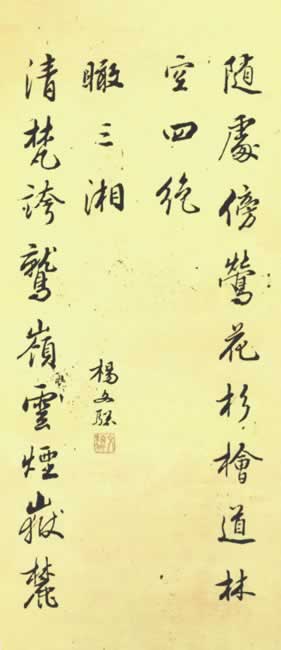 随處傍鶯花杉檜道林
空四絶
清梵誇鷲嶺雲煙嶽麓
瞰三湘
楊文驄